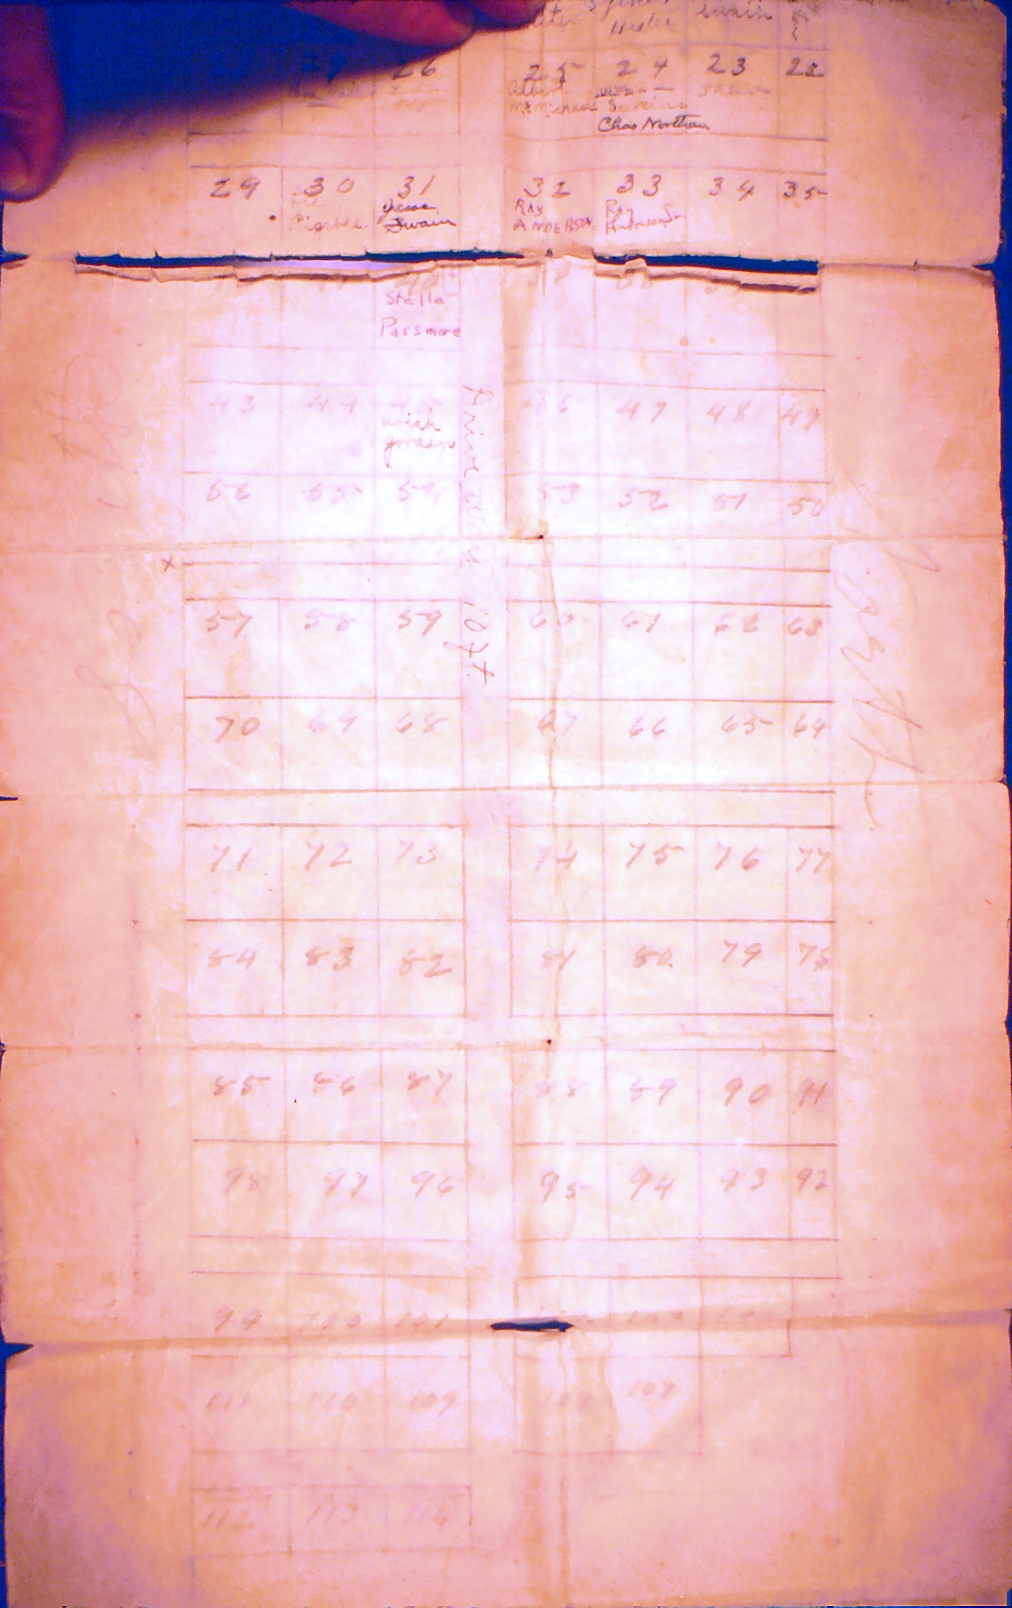 Swain
26 25 24 23 22
Albert
McMichael
Chas Northan
29 30 31 32 33 34 35
Jesse
Swain
Ray
ANDERSON
Ray
Anderson Jr.
Stella
Passmore
43 44 46 47 48 49
Uriah
Jordan
56 55 54 53 52 51 50
x
Drive Way 10 ft.
57 58 59 60 61 62 63
70 69 68 67 66 65 64
71 72 73 74 75 76 77
84 83 82 81 80 79 78
85 86 87 88 89 90 91
98 97 96 95 94 93 92
99 100 101
111 110 109 108 107
112 113 114